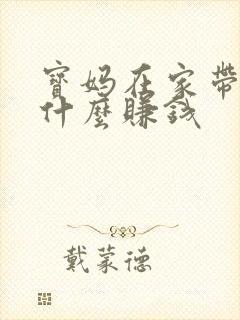 寶媽在家帶
什麼賺錢
戴蒙德